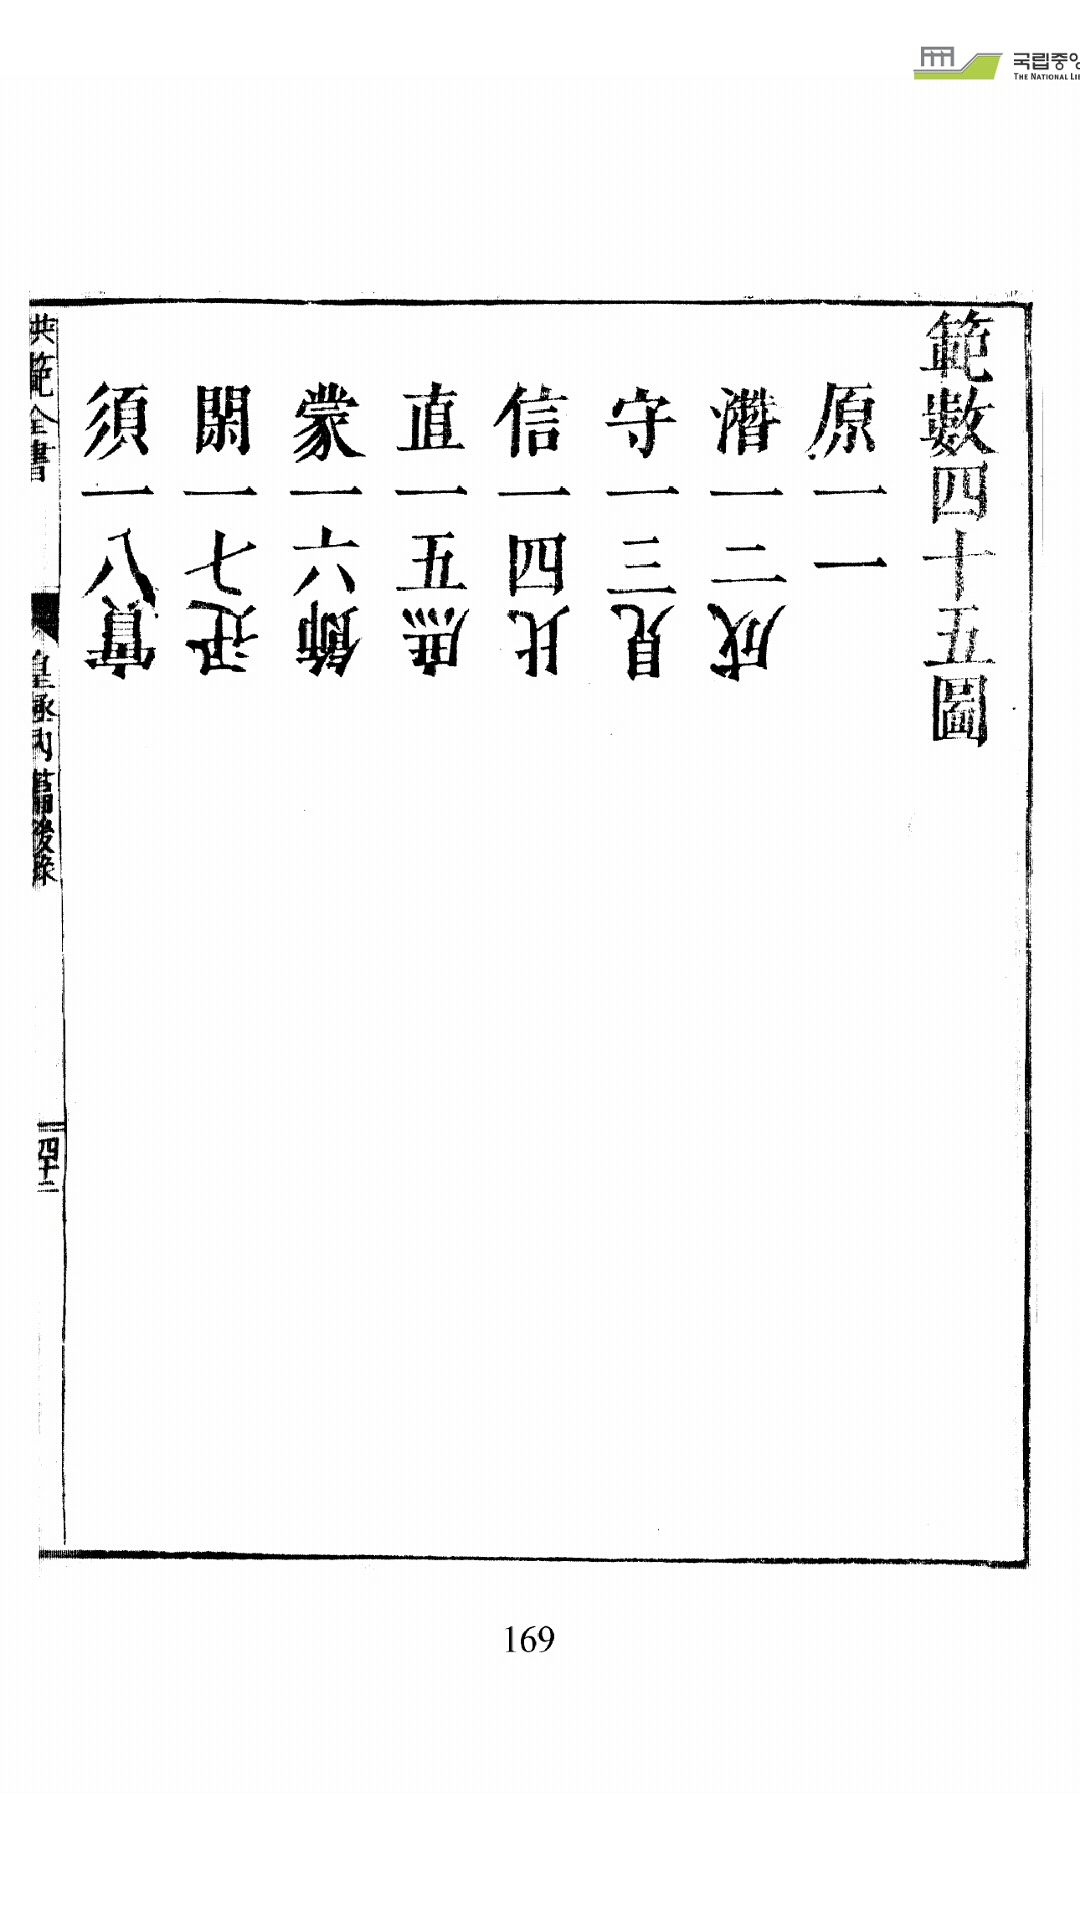 국립중앙
THE NATIONAL LI
範數四十五圖
原一一
潛一二成
守一三見
信一四比
直一五庶
蒙一六飾
閑一七迅
須一八實
洪範全書
皇極內篇後錄
四十二
169